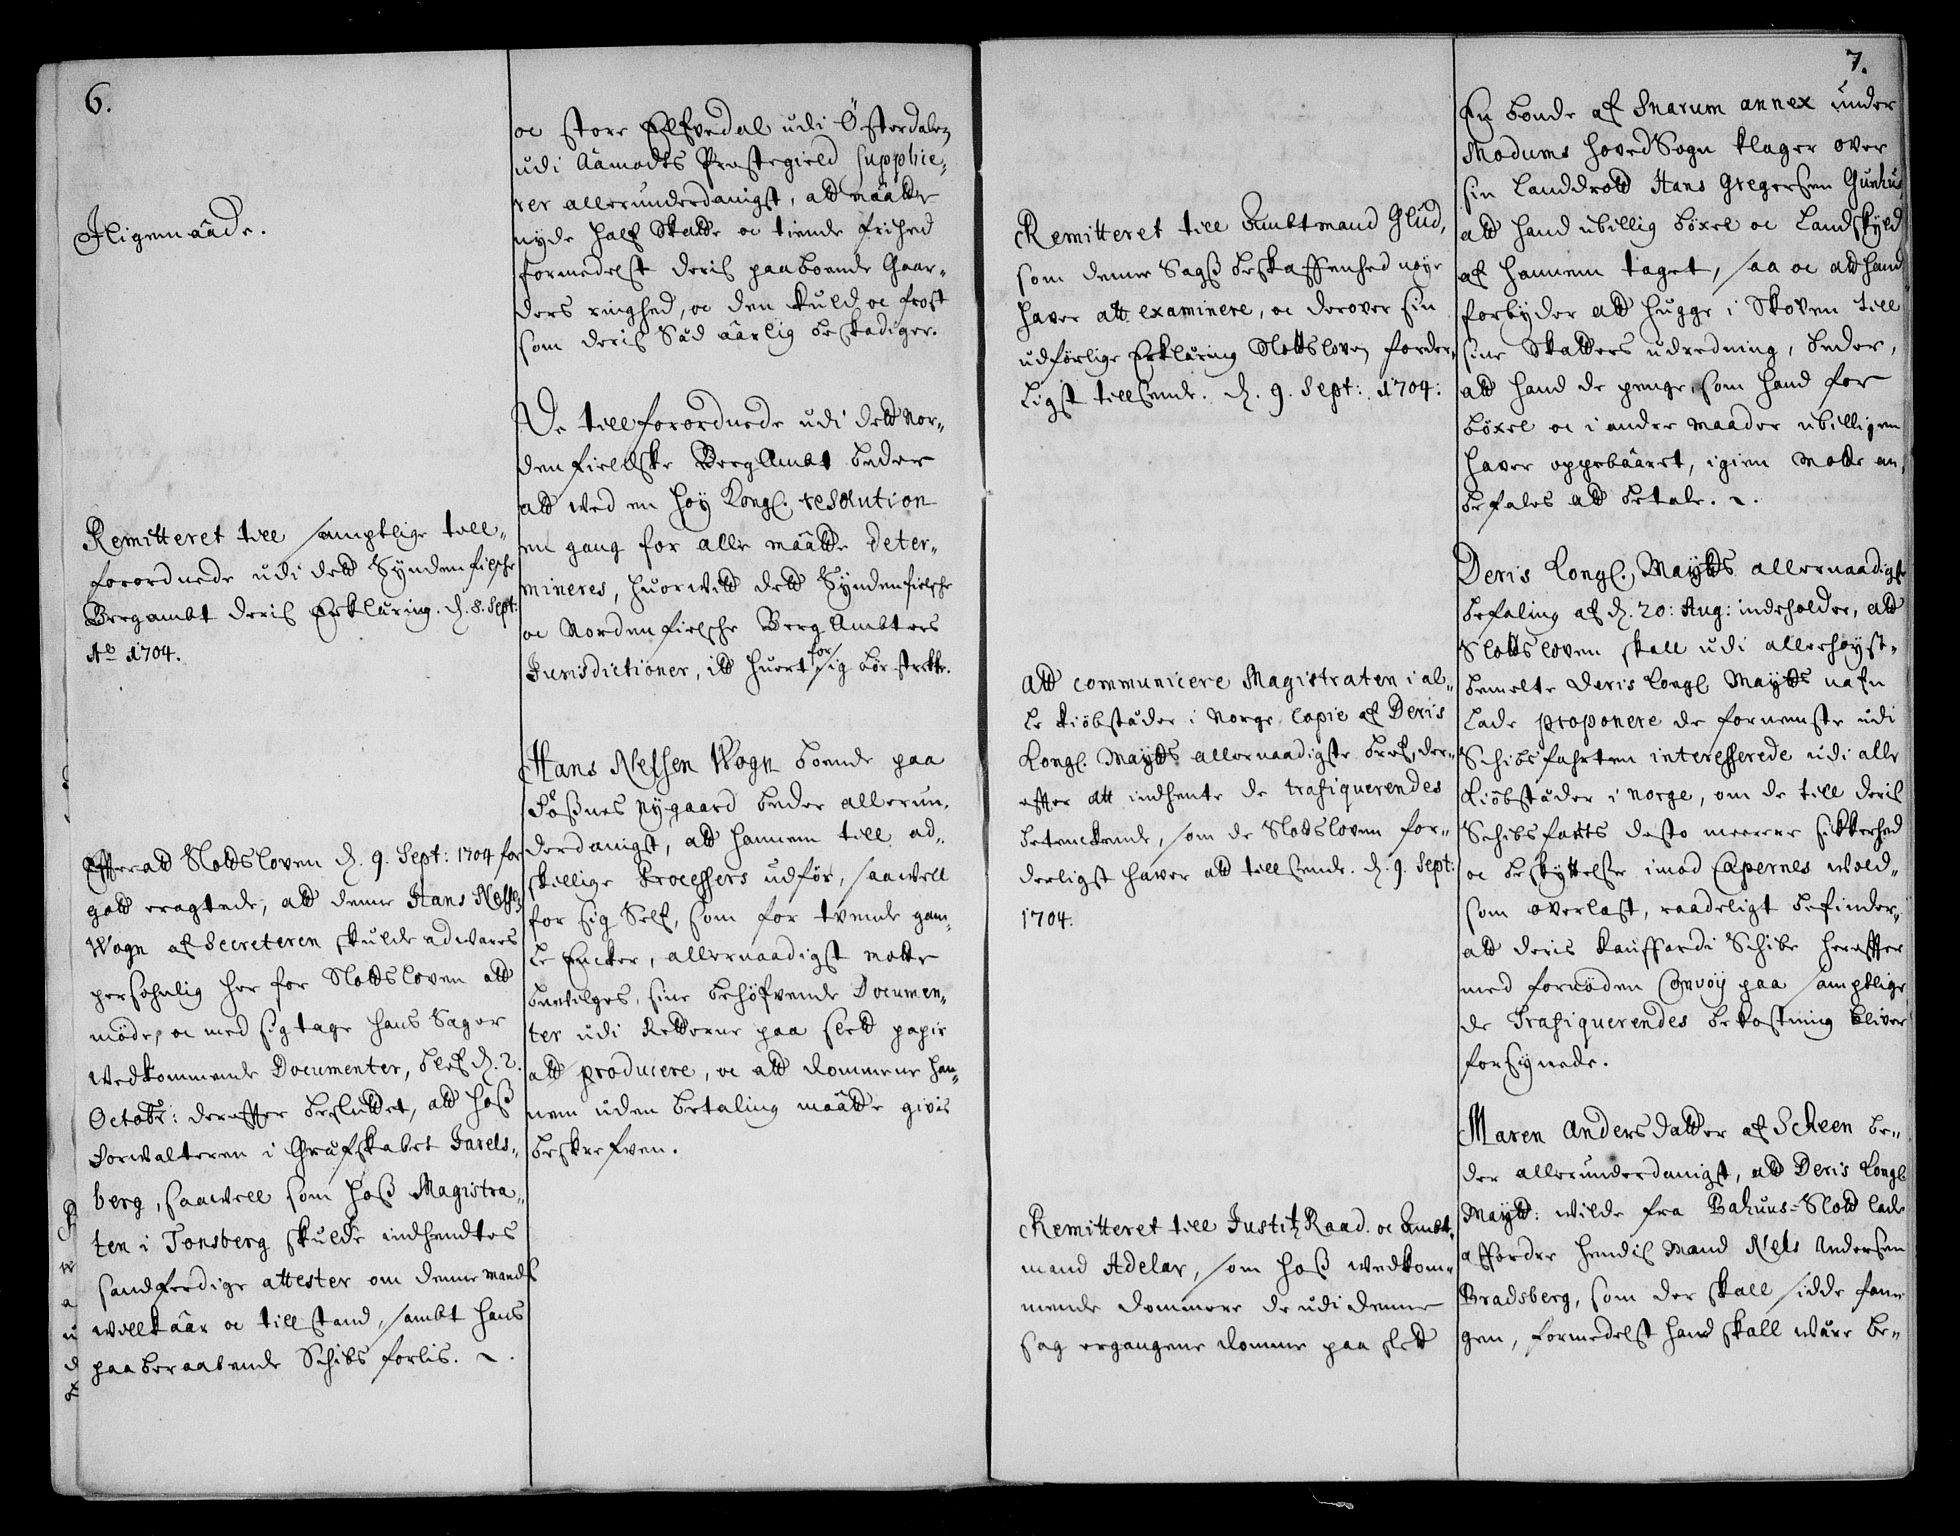 6.
Iligemaade.
Remitteret till samptlige till-
forordnede udi dett Syndenfielsche
Bergambt deris Erklæring. d. 8. Sept:
Aō 1704.
Effteratt Slottsloven d. 9. Sept: 1704 for
gott eragtede, att denne Hans Nelsen
Wogn af Secreteren skulde advares
persohnlig her for Slottsloven att
møde, oc med sig tage hans Sager
vedkommende Documenter, blef d. 2.
Octobr: dereffter besluttet, att hoß
Forwalteren i Grefskabet Jarels-
berg, saavell som hoß Magistra-
ten i Tonsberg skulde indhendtes
sandferdige attester om denne Mands
villkaar oc tillstand, sambt hans
paaberaabende Schibs forlis.
oc store Elfvedal udi Österdalen
udi Aamodts Præstegield supplice-
rer allerunderdanigst, att maatte
nyde half Skatte oc tiende frihed
formedelst deris paaboende Gaar-
ders ringhed, oc den kuld oc frost
som deris Säd aarlig beskadiger.
De tillforordnede udi dett Nor-
denfieldske BergAmbt beder
att ved en høy Kongl. resolution
en gang for alle maatte deter-
mineres, huorvitt dett Syndenfielsche
oc Nordenfielsche Berg Ambters
Jurisdictioner, itt huert for sig bør strekke.
Hans Nelsen Wogn boende paa
Foßnes Nygaard beder allerun-
derdanigst, att hannem till ad-
skillige Processers udför, saavell
for sig Self, som for tvende gam-
le Encker, allernaadigst motte
bevilges, sine behöfvende Documen-
ter udi Retterne paa slett papir
att producere, oc att Dommene han-
nem uden betaling maatte givis
beskrefven.
Remitteret till Ambtmand Glud,
som denne Sagß beskaffenhed nøye
haver att examinere, oc derover sin
udförlige Erklæring Slottsloven forder-
ligst tillsende. d. 9. Sept: 1704:
Att communicere Magistraten i al-
le Kiöbstæder i Norge Copie af Deris
Kongl. Maytts allernaadigste bref, der-
effter att indhente de trafiquerendes
betenckende, som de Slottsloven for-
derligst haver att tillsende. d. 9. Sept:
1704.
Remitteret till Justitz Raad oc Ambt-
mand Adeler, som hoß vedkom-
mende Dommere de udi denne
sag ergangene Domme paa slett
7.
En bonde af Snarum annex under
Modums hovedSogn klager over
sin Landdrott Hans Gregersen
att hand ubillig böxel oc Landskyld
af hannem taget, saa oc att hand
forbyder att hugge i Skoven till
sine Skatters udredning, beder,
att hand de penge, som hand for
böxel oc i andre maader ubilligen
haver oppebaaret, igien motte an-
befales att betale.
Deris Kongl. Maytts allernaadigste
befaling af d. 20: Aug: indeholder, att
Slottsloven skall udi allerhøyst-
bemelte Deris Kongl Maytts nafn
lade proponere de fornemste udi
Schibsfahrten interesserede udi alle
Kiöbstæder i Norge, om de till deris
Schibsfarts desto meerere sikkerhed
oc beskyttelse imod Capernes vold-
som overlast, raadeligt befinder,
att deris Kauffardi Schibe hereffter
med fornöden Convoy paa samptlige
de Trafiquerendes bekostning bliver
forsynede.
Maren Andersdatter af Scheen be-
der allerunderdanigst, att Deris Kongl
Maytt: vilde fra Bahuus-Slott lade
affordre hendis Mand Niels Andersen
Bradsberg, som der skall sidde fan-
gen, formedelst hand skall være be-